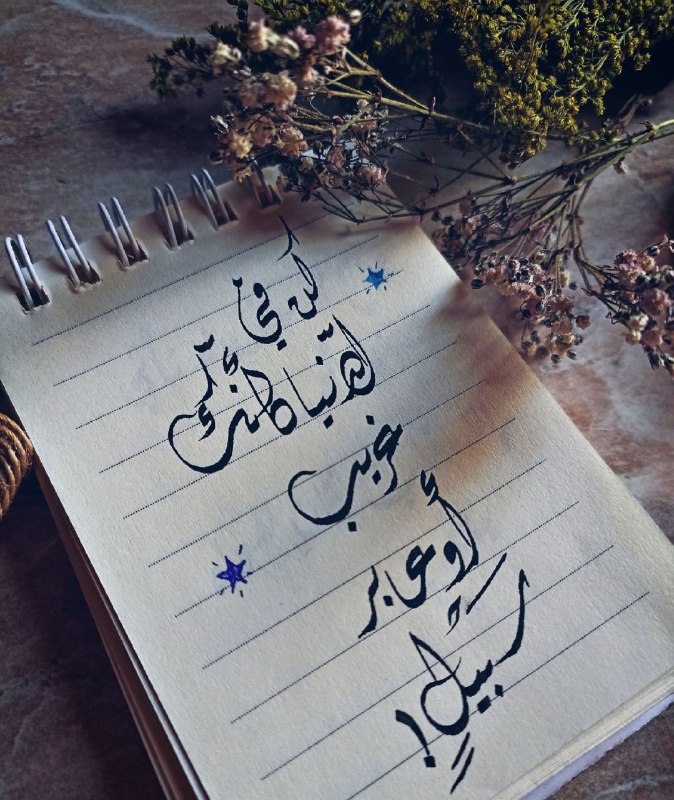 كن في
الدنيا كأنك
غريب
أو عابر
سبيلٍ!